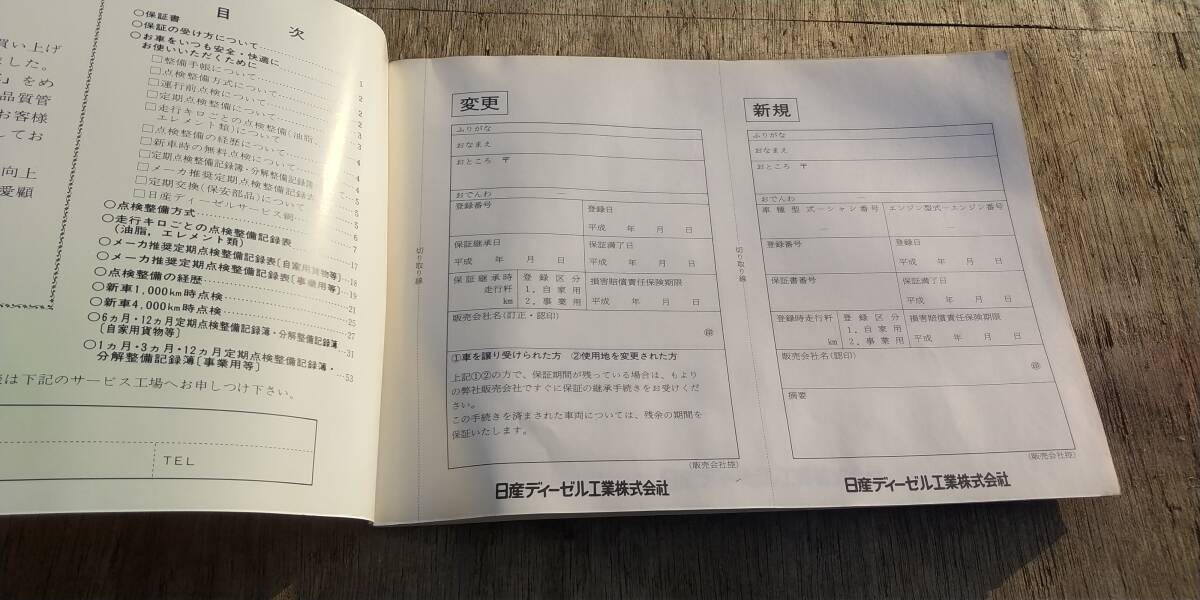 買い上げ
ました。
』をめ
品質管
お客様
してお
向上
愛顧
目次
○保証書
○保証の受け方について
○お車をいつも安全・快適に
お使いいただくために
□整備手帳について 1
□点検整備方式について 2
□運行前点検について 2
□定期点検整備について 2
□走行キロごとの点検整備(油脂、
エレメント類)について 3
□点検整備の経歴について 3
□新車時の無料点検について 4
□定期点検整備記録簿・分解整備記録簿 4
□メーカ推奨定期点検整備記録表 4
□定期交換(保安部品)について 5
□日産ディーゼルサービス網 5
○点検整備方式 6
○走行キロごとの点検整備記録表
(油脂,エレメント類) 7
○メーカ推奨定期点検整備記録表〔自家用貨物等〕 17
○メーカ推奨定期点検整備記録表〔事業用等〕 18
○点検整備の経歴 19
○新車1,000km時点検 21
○新車4,000km時点検 25
○6ヵ月・12ヵ月定期点検整備記録簿・分解整備記録簿 27
〔自家用貨物等〕 31
○1ヵ月・3ヵ月・12ヵ月定期点検整備記録簿・
分解整備記録簿〔事業用等〕 53
は下記のサービス工場へお申しつけ下さい。
TEL
切り取り線
変更
ふりがな
おなまえ
おところ 〒
おでんわ ―
登録番号 登録日
平成 年 月 日
保証継承日 保証満了日
平成 年 月 日 平成 年 月 日
保証継承時 登録区分 損害賠償責任保険期限
走行粁 1.自家用
km 2.事業用 平成 年 月 日
販売会社名(訂正・認印)
㊞
①車を譲り受けられた方 ②使用地を変更された方
上記①②の方で、保証期間が残っている場合は、もより
の弊社販売会社ですぐに保証の継承手続きをお受けくだ
さい。
この手続きを済まされた車両については、残余の期間を
保証いたします。
(販売会社控)
日産ディーゼル工業株式会社
切り取り線
新規
ふりがな
おなまえ
おところ 〒
おでんわ ―
車種型式―シャシ番号 エンジン型式―エンジン番号
― ―
登録番号 登録日
平成 年 月 日
保証書番号 保証満了日
平成 年 月 日
登録時走行粁 登録区分 損害賠償責任保険期限
1.自家用
km 2.事業用 平成 年 月 日
販売会社名(認印)
㊞
摘要
(販売会社控)
日産ディーゼル工業株式会社